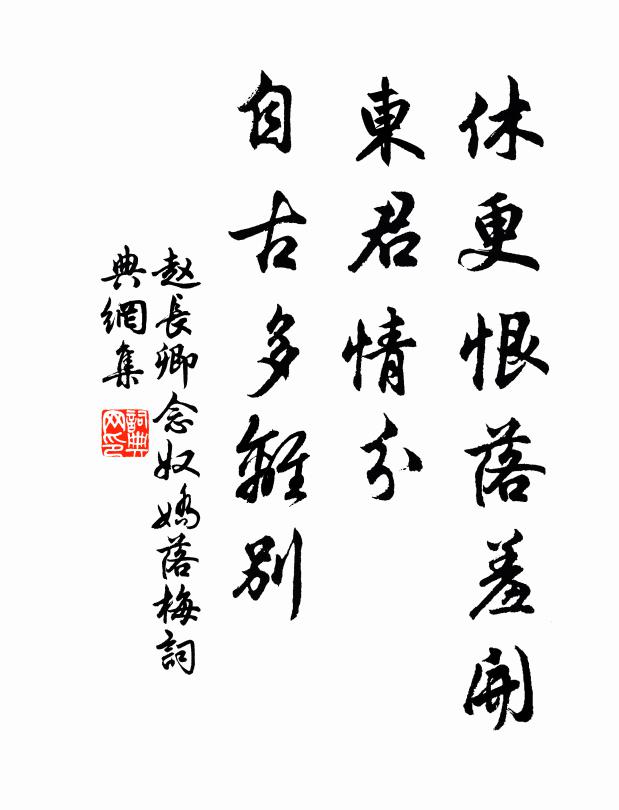 休更恨落羞開
東君情分
自古多離別
赵長卿念奴嬌落梅詞
典網集
詞典網印